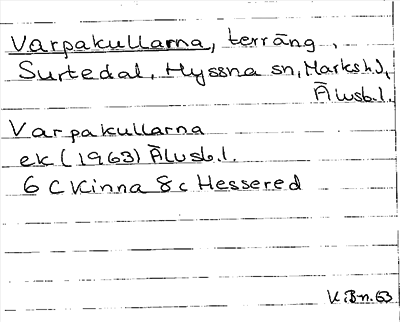 Varpakullarna, terräng,
Surtedal, Hyssna sn, Marks h.d,
Älvsb.l.
Varpakullarna
ek (1963) Älvsb.l.
6 C Kinna 8 c Hessered
K.B-n. 63